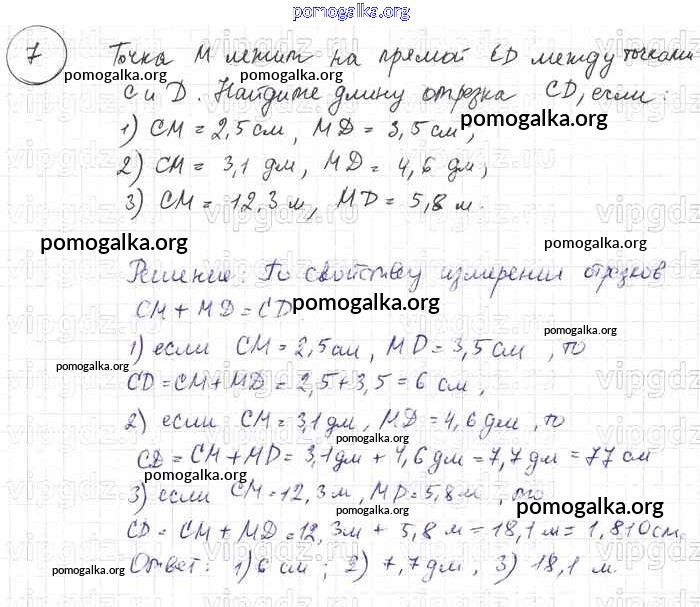 pomogalka.org
7 Точка M лежит на прямой CD между точками
pomogalka.org pomogalka.org
C и D. Найдите длину отрезка CD, если:
1) CM = 2,5 см, MD = 3,5 см,
pomogalka.org
2) CM = 3,1 дм, MD = 4,6 дм,
3) CM = 12,3 м, MD = 5,8 м.
pomogalka.org
pomogalka.org
Решение: По свойству измерения отрезков
CM + MD = CD
pomogalka.org
pomogalka.org
1) если CM = 2,5 см, MD = 3,5 см, то
pomogalka.org
CD = CM + MD = 2,5 + 3,5 = 6 см,
2) если CM = 3,1 дм, MD = 4,6 дм, то
pomogalka.org
CD = CM + MD = 3,1 дм + 4,6 дм = 7,7 дм = 77 см
pomogalka.org
3) если CM = 12,3 м, MD = 5,8 м, то
pomogalka.org
CD = CM + MD = 12,3м + 5,8 м = 18,1 м = 1,810 см,
Ответ: 1) 6 см; 2) 7,7 дм, 3) 18,1 м.
pomogalka.org pomogalka.org